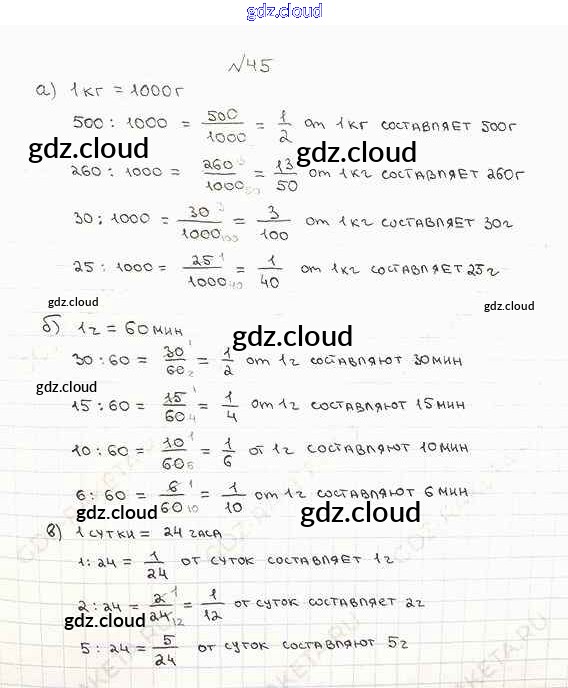 gdz.cloud
№45
а) 1кг = 1000г
500 : 1000 = 500/1000 = 1/2 от 1кг составляет 500г
gdz.cloud gdz.cloud
260 : 1000 = 260/1000 = 13/50 от 1кг составляет 260г
30 : 1000 = 30/1000 = 3/100 от 1кг составляет 30г
25 : 1000 = 25/1000 = 1/40 от 1кг составляет 25г
gdz.cloud gdz.cloud
б) 1г = 60мин gdz.cloud
30 : 60 = 30/60 = 1/2 от 1г составляют 30мин
gdz.cloud
15 : 60 = 15/60 = 1/4 от 1г составляют 15мин
10 : 60 = 10/60 = 1/6 от 1г составляют 10мин
6 : 60 = 6/60 = 1/10 от 1г составляют 6мин
gdz.cloud gdz.cloud
в) 1сутки = 24часа
1 : 24 = 1/24 от суток составляет 1г
2 : 24 = 2/24 = 1/12 от суток составляет 2г
gdz.cloud
5 : 24 = 5/24 от суток составляют 5г